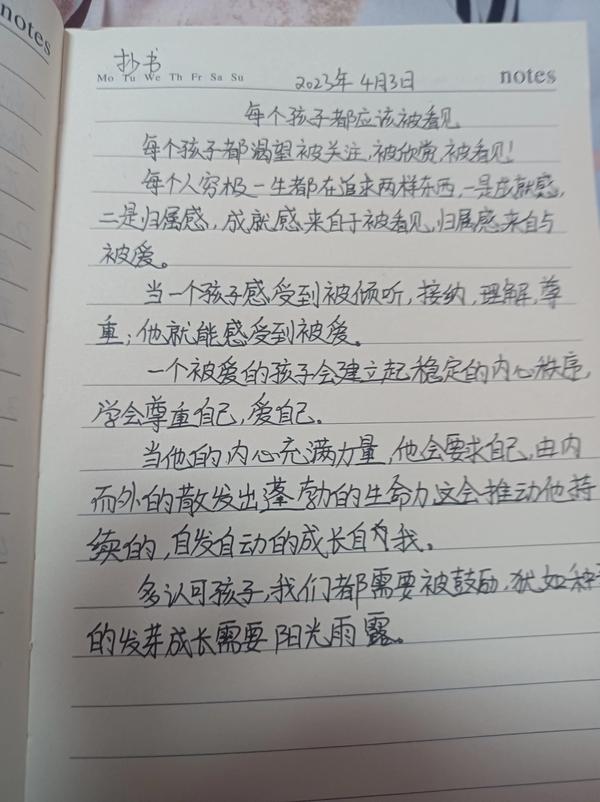 notes
抄书
Mo Tu We Th Fr Sa Su
2023年 4月3日
notes
每个孩子都应该被看见
每个孩子都渴望被关注,被欣赏,被看见!
每个人穷极一生都在追求两样东西,一是成就感,
二是归属感,成就感来自于被看见,归属感来自与
被爱。
当一个孩子感受到被倾听,接纳,理解,尊
重;他就能感受到被爱。
一个被爱的孩子会建立起稳定的内心秩序,
学会尊重自己,爱自己.
当他的内心充满力量,他会要求自己,由内
而外的散发出蓬勃的生命力,这会推动他持
续的,自发自动的成长自我。
多认可孩子,我们都需要被鼓励,犹如种子
的发芽成长需要阳光雨露。